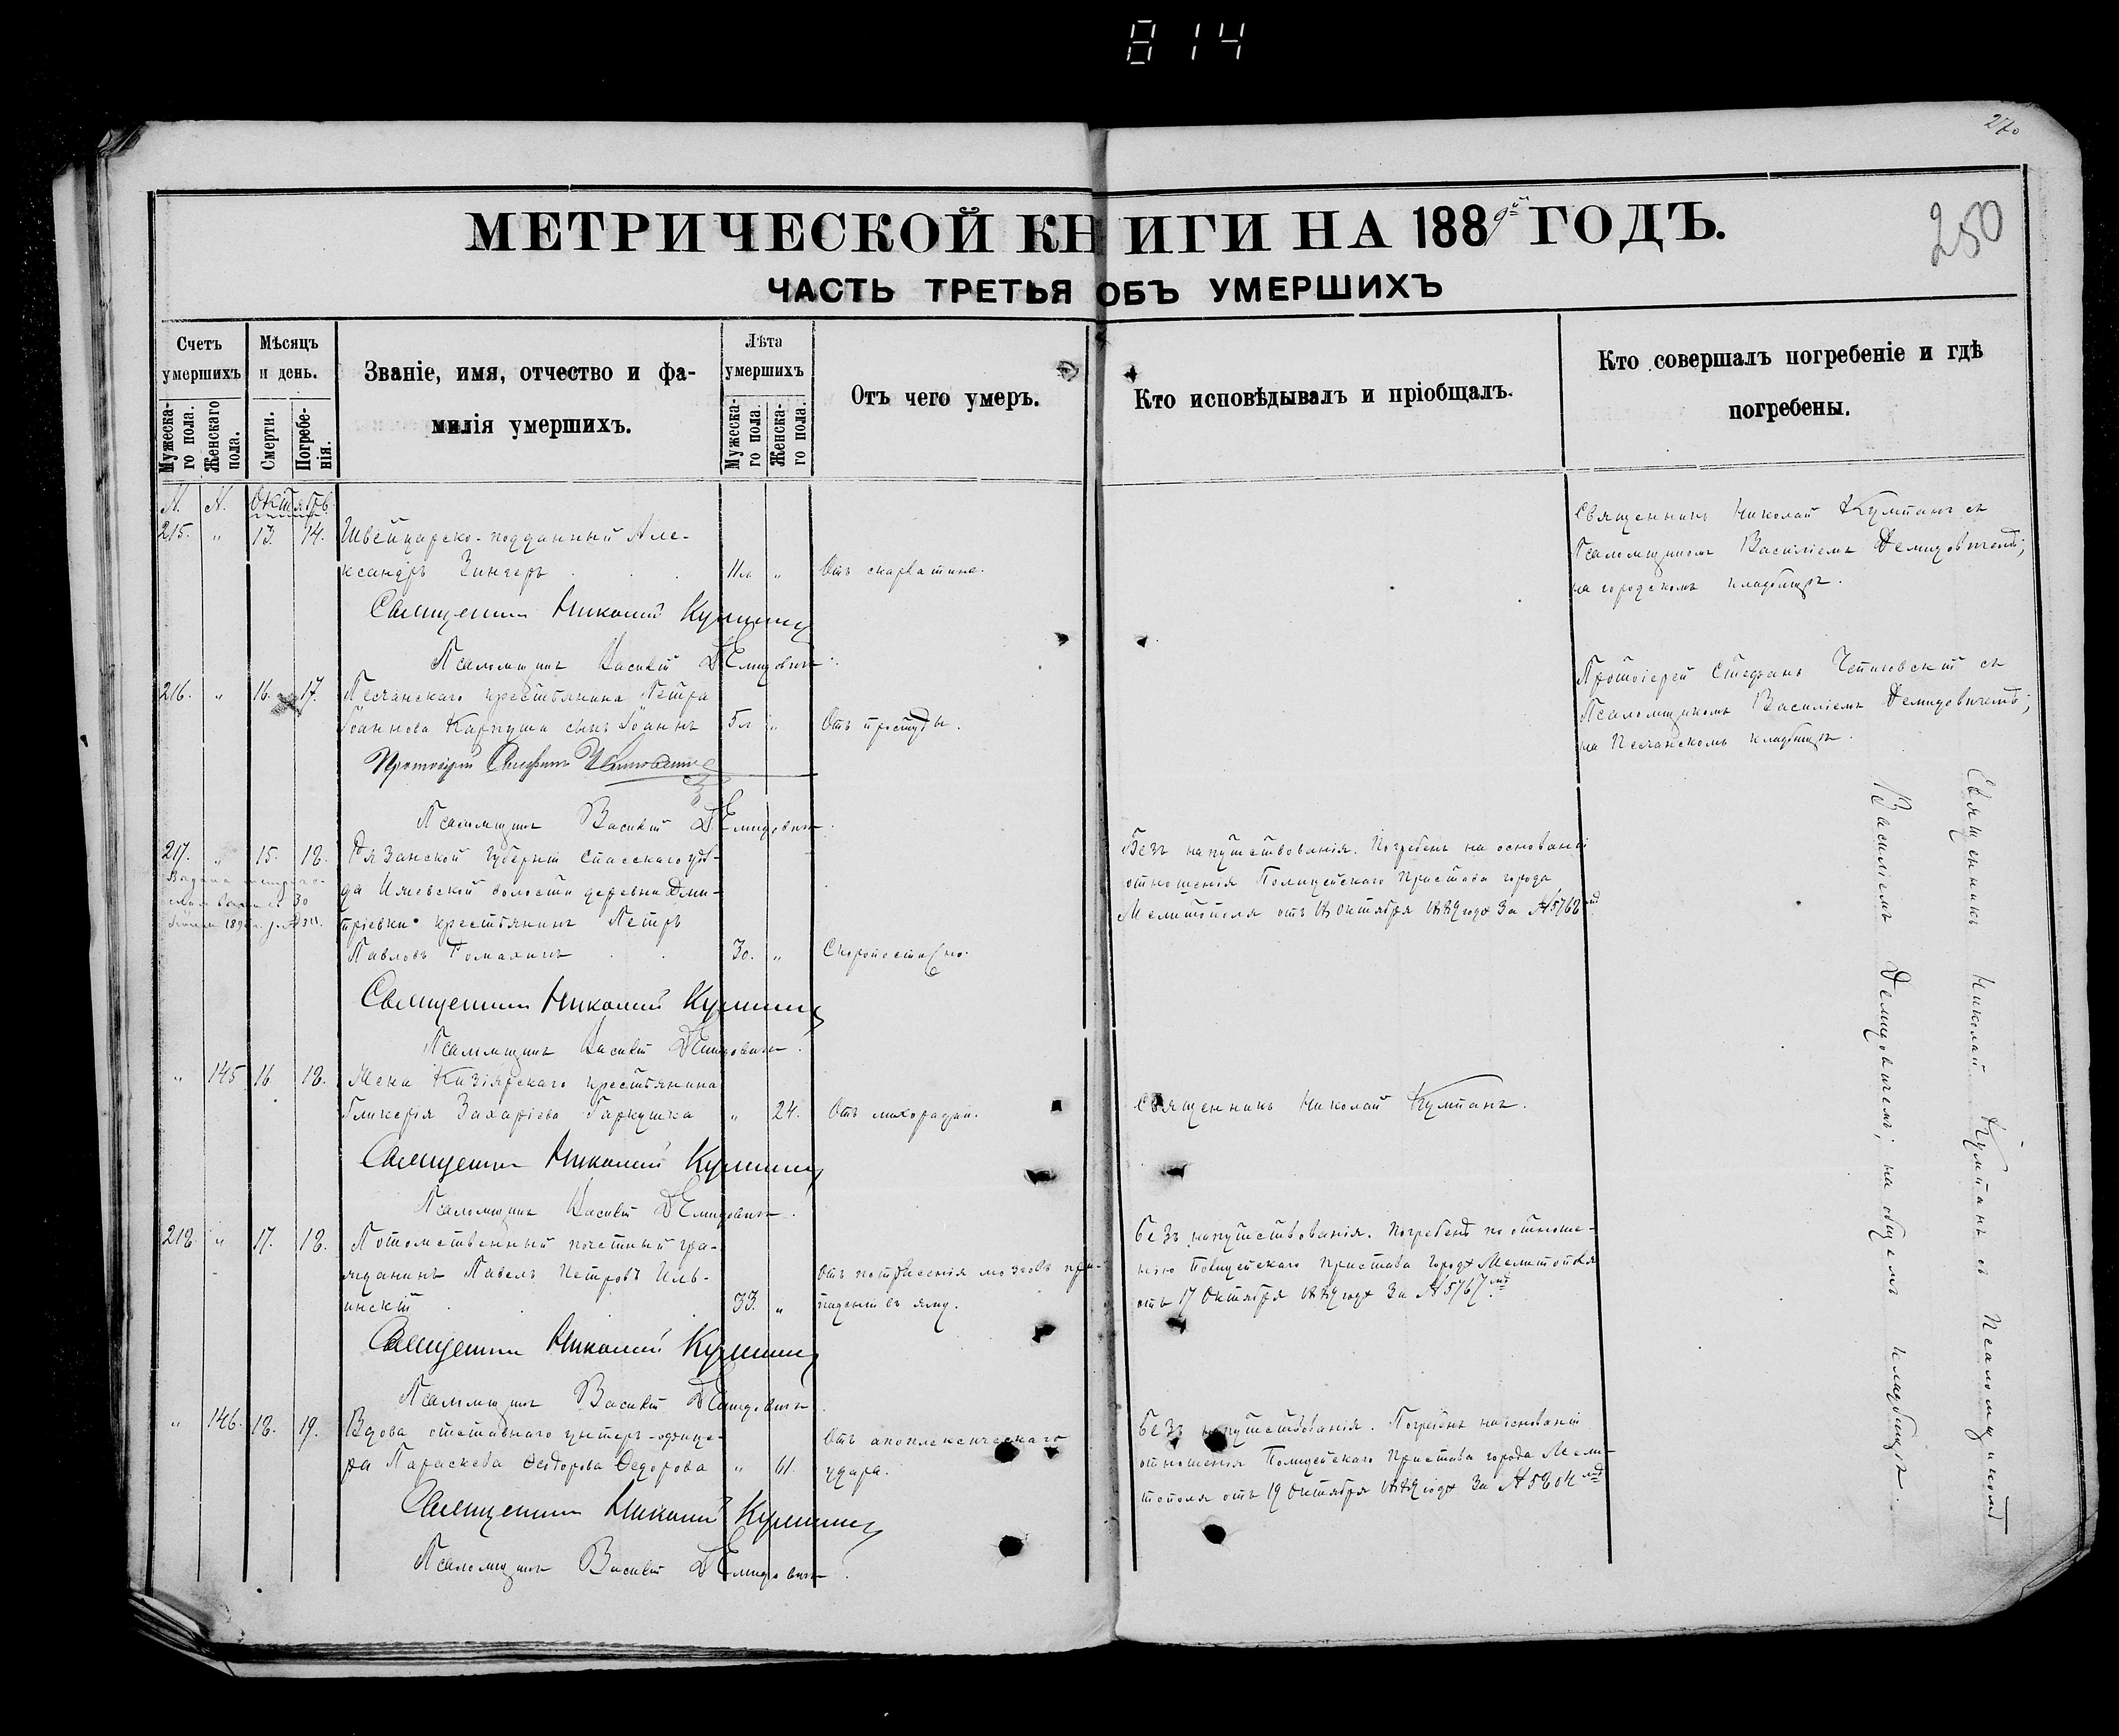 814
270
250
МЕТРИЧЕСКОЙ КНИГИ НА 1889й ГОДЪ.
ЧАСТЬ ТРЕТЬЯ ОБЪ УМЕРШИХЪ
Счетъ умершихъ
Мужеска-го пола.
Женскаго пола.
Мѣсяцъ и день.
Смерти.
Погребе-нія.
Званіе, имя, отчество и фа-
милія умершихъ.
Лѣта умершихъ
Мужеска-го пола.
Женска-го пола.
Отъ чего умеръ.
Кто исповѣдывалъ и пріобщалъ.
Кто совершалъ погребеніе и гдѣ
погребены.
Октябрь
215. " 13. 14. Швейцарско-подданный Але-
ксандръ Зингеръ 11л. " Отъ скарлатины.
Священникъ Николай Кумпанъ съ
Псаломщикомъ Василіемъ Демидовичемъ;
на городскомъ кладбищѣ.
Священникъ Николай Кумпанъ
Псаломщикъ Василій Демидовичъ.
216. " 16. 17. Песчанскаго крестьянина Петра
Іоаннова Каркуша сынъ Іоаннъ 5л. " Отъ простуды.
Протоіерей Стефанъ съ
Псаломщикомъ Василіемъ Демидовичемъ;
на Песчанскомъ кладбищѣ.
Протоіерей Стефанъ
Псаломщикъ Василій Демидовичъ.
217. " 15. 18. Рязанской губерніи Спасскаго уѣз-
да Ижевской волости деревни Дми-
тріевки крестьянинъ Петръ
Павловъ 30. " Скоропостижно.
Выдана
30
Безъ напутствованія. Погребенъ на основаніи
отношенія Полицейскаго Пристава города
Мелитополя отъ 18 Октября 1889 года за № 5768мъ
Священникъ Николай Кумпанъ
Псаломщикъ Василій Демидовичъ.
" 145 16 18. Жена Кизіярскаго крестьянина
Гликерія Захаріева Гаркушка " 24. Отъ лихорадки.
Священникъ Николай Кумпанъ.
Священникъ Николай Кумпанъ
Псаломщикъ Василій Демидовичъ.
218. " 17. 18. Потомственный почетный гра-
жданинъ Павелъ Петровъ Иль-
инскій 33. " Отъ потрясенія мозговъ при
паденіи въ яму.
Безъ напутствованія. Погребенъ по отноше-
нію Полицейскаго Пристава города Мелитополя
отъ 17 Октября 1889 года за № 5767мъ
Священникъ Николай Кумпанъ
Псаломщикъ Василій Демидовичъ
" 146. 18. 19. Вдова отставнаго унтеръ-офице-
ра Параскева Ѳеодорова Ѳедорова " 61. Отъ апоплексическаго
удара.
Безъ напутствованія. Погребена на основаніи
отношенія Полицейскаго Пристава города Мели-
тополя отъ 19 Октября 1889 года за № 5804мъ
Священникъ Николай Кумпанъ
Псаломщикъ Василій Демидовичъ.
Священникъ Николай Кумпанъ съ Псаломщикомъ
Василіемъ Демидовичемъ; на общемъ кладбищѣ.